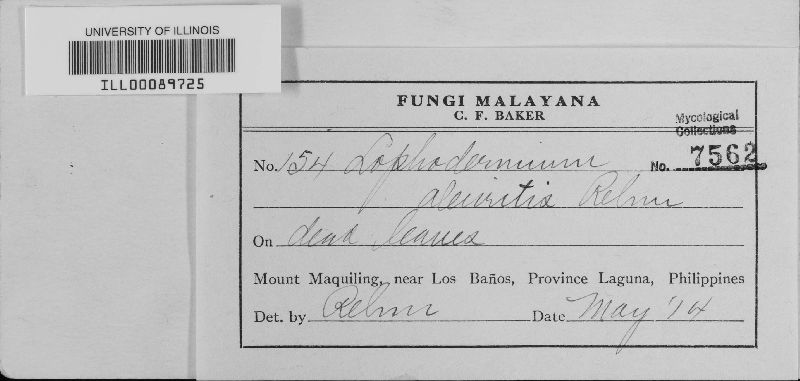 UNIVERSITY OF ILLINOIS
ILL00089725
FUNGI MALAYANA
C. F. BAKER
Mycological
Collections
No. 154 Lophodermium No. 7562
aleuritis Rehm
On dead leaves
Mount Maquiling, near Los Baños, Province Laguna, Philippines
Det. by Rehm Date May '14